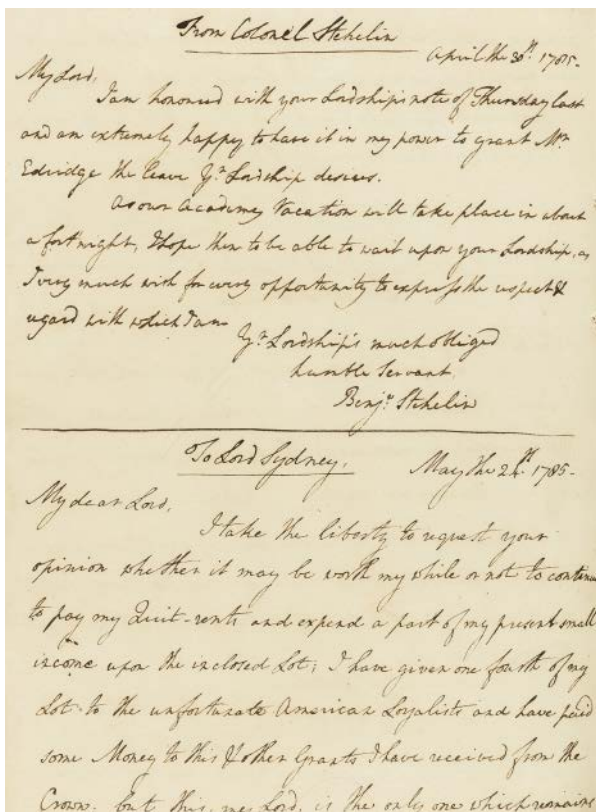 From Colonel Stehelin
April the 30th. 1785-
My Lord,
I am honored with your Lordship's note of Thursday last
and am extremely happy to have it in my power to grant Mr.
Edridge the leave Yr. Lordship desires.
As our Academy Vacation will take place in about
a fortnight, I hope then to be able to wait upon your Lordship, as
I very much wish for every opportunity to express the respect &
regard with which I am
Yr. Lordship's much obliged
humble Servant
Benjn. Stehelin
To Lord Sydney.
May the 1785-
My dear Lord,
I take the liberty to request your
opinion whether it may be worth my while or not to continue
to pay my Quit-rents and expend a part of my present small
income upon the inclosed Lot; I have given one fourth of my
Lot to the unfortunate American Loyalists and have paid
some Money to this & other Grants I have received from the
Crown. but this, my Lord, is the only one which remains